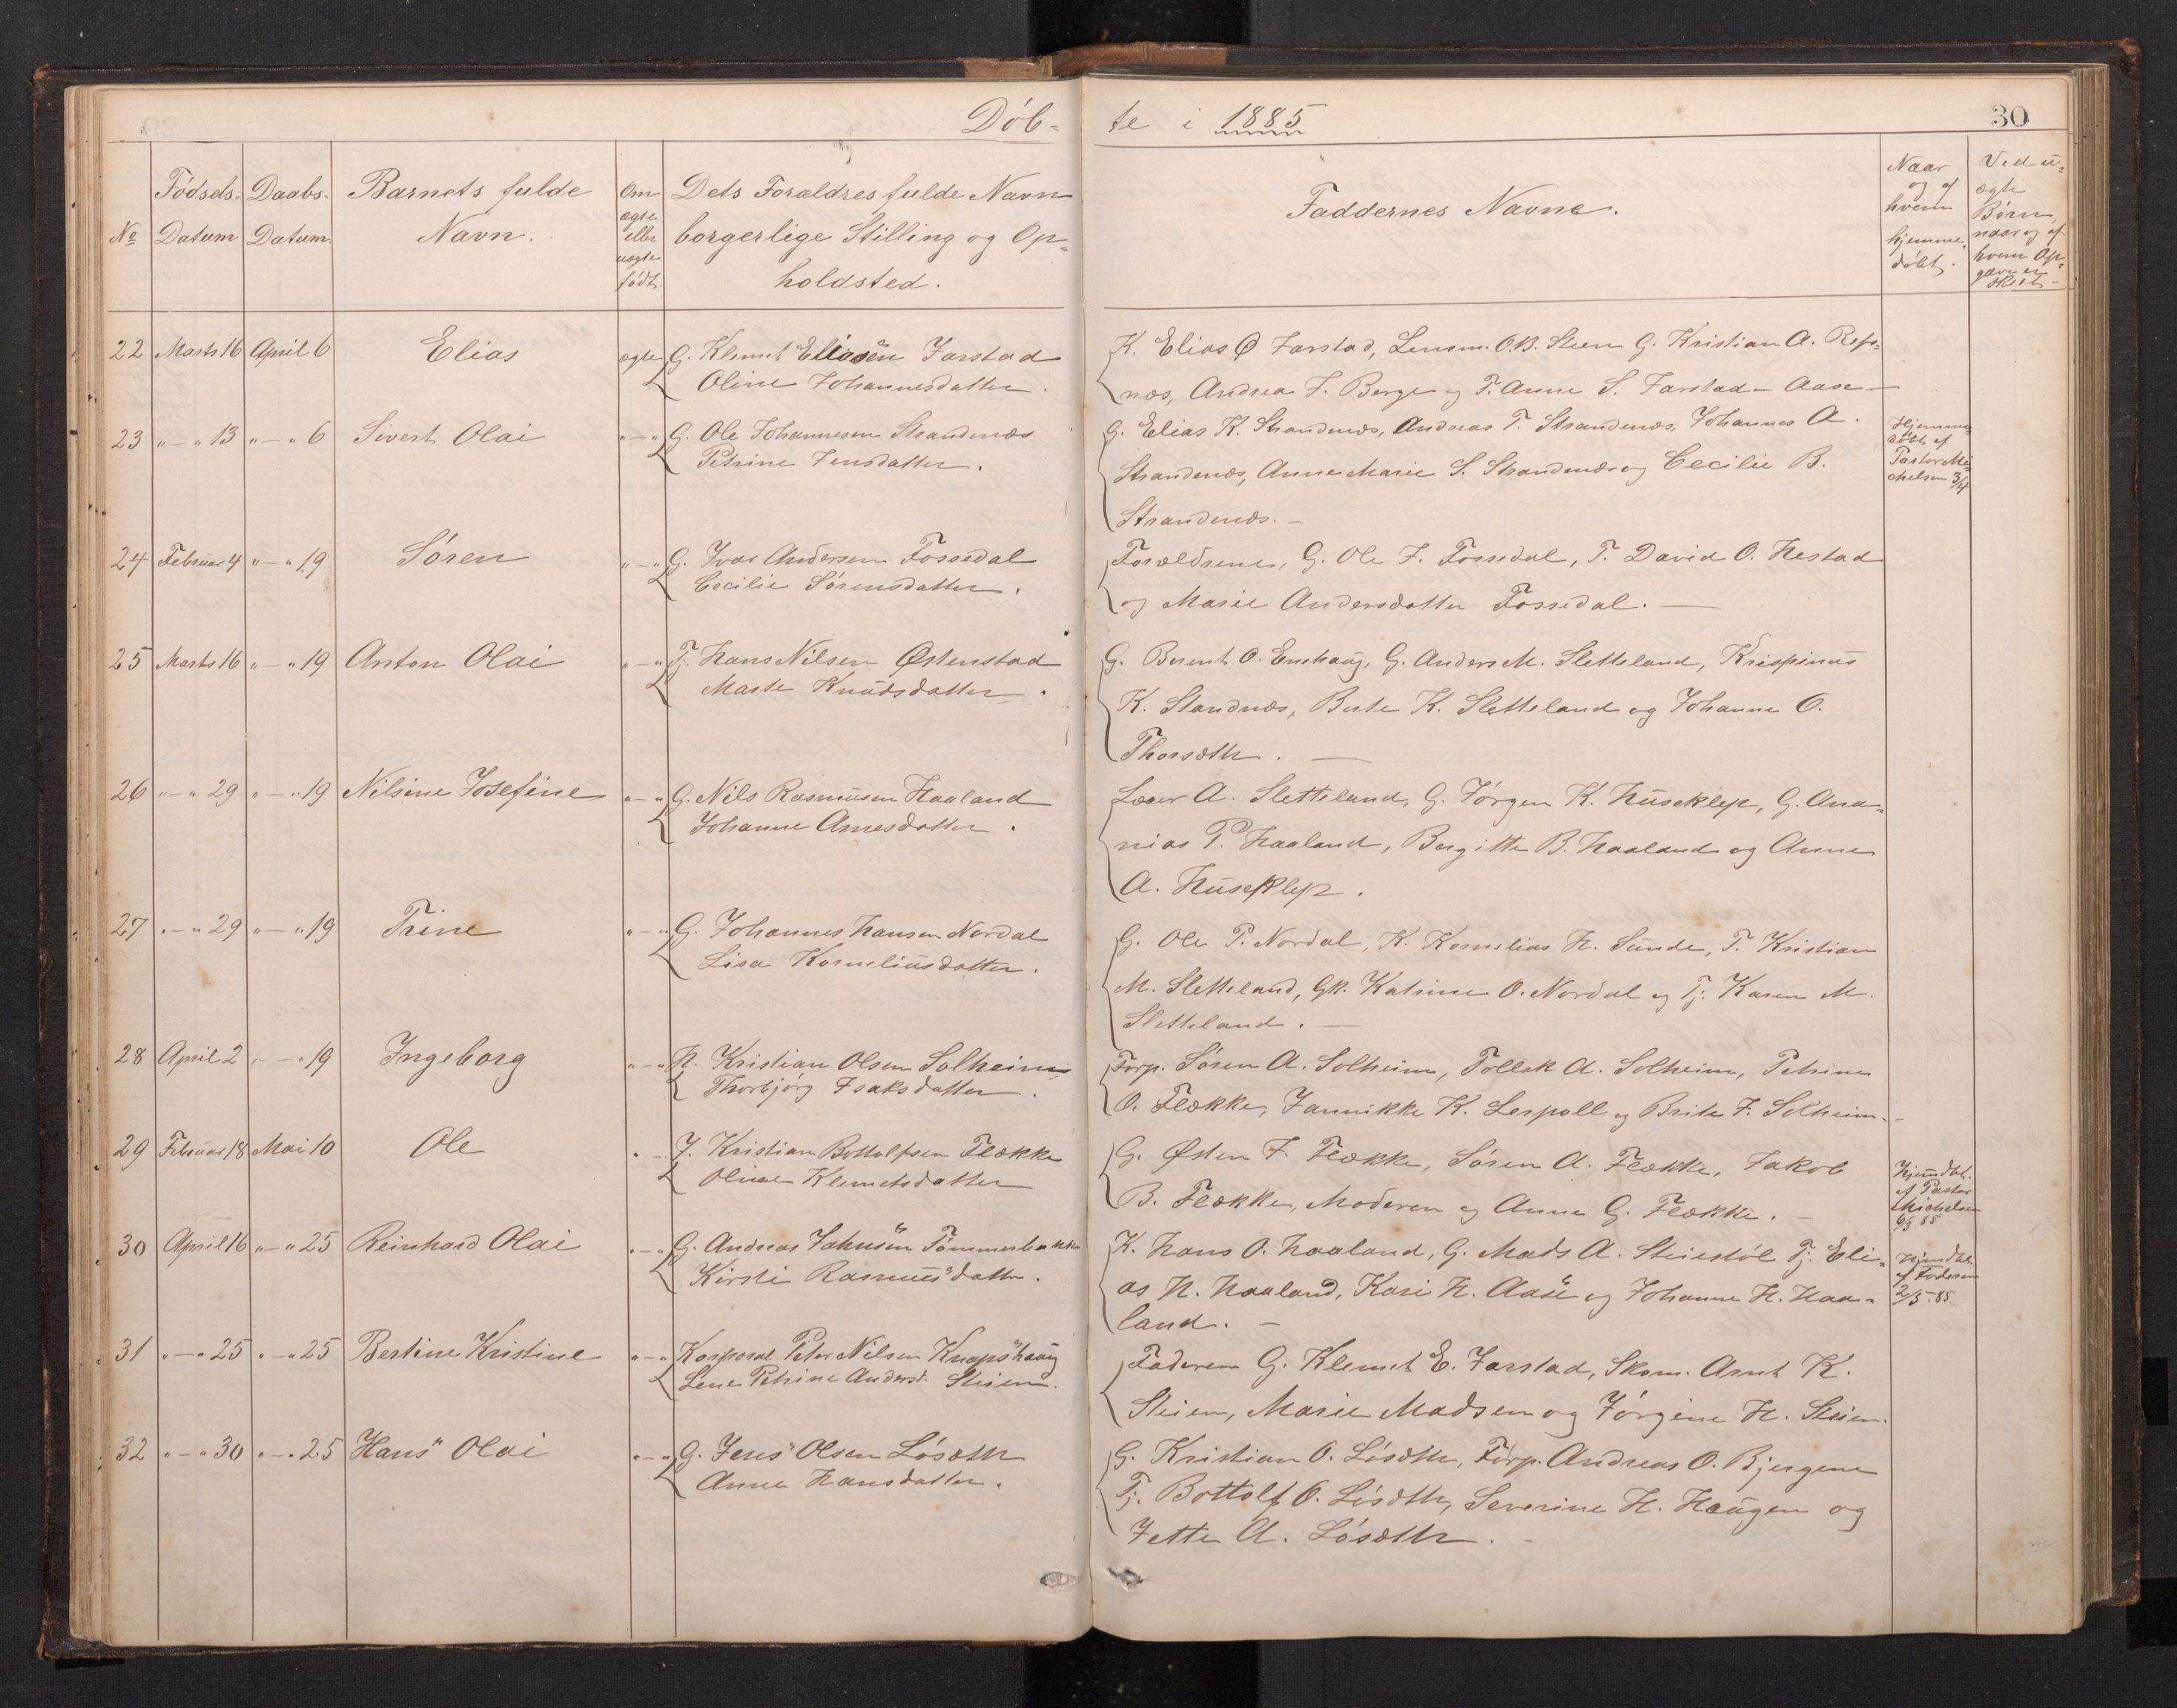 Döb- te i 1885 30
No
Födsels- Datum
Daabs- Datum
Barnets fulde Navn.
Om ægte eller uægte födt.
Dets Forældres fulde Navn borgerlige Stilling og Op- holdsted.
Faddernes Navne.
Naar og af hvem hjemme- döbt.
Ved u- ægte Börn, naar og af hvem Op- gave er
22 Marts 16 April 6 Elias ægte G. Klemet Eliasen Farstad
Oline Johannesdatter.
K. Elias Ø Farstad, Lensm. O.B. Steen G. Kristian A. Reps-
næs, Andrea J. Berge og P. Anne S. Farstad - Aase -
23 " - " 13 " - " 6 Sivert Olai " - " G. Ole Johannesen Strandenæs
Petrine Jensdatter.
G. Elias K. Strandenæs, Andreas T. Strandenæs, Johannes A.
Strandenæs, Anne Marie S. Strandenæs og Cecilie B.
Strandenæs. -
Hjemme-
döbt af
Pastor Mi-
chelsen 3/4
24 Februar 4 " - " 19 Søren " - " G. Ivar Andersen Fossedal
Cecilie Sørensdatter.
Forældrene, G. Ole J. Fossedal, T. David O. Hestad
og Marie Andersdatter Fossedal. -
25 Marts 16 " - " 19 Anton Olai " - " Tj. Hans Nilsen Østenstad
Marte Knudsdatter.
G. Berent O. Emhaug, G. Anders M. Sletteland, Krispinus
K. Standnæs, Berte K. Sletteland og Johanne O.
Thorsæth. -
26 " - " 29 " - " 19 Nilsine Josefine " - " G. Nils Rasmusen Haaland
Johanne Arnesdatter.
Lærer A. Sletteland, G. Jörgen K. Huseklep, G. Ana-
nias P. Haaland, Bergitte B. Haaland og Anne
A. Huseklep.
27 " - " 29 " - " 19 Trine " - " G. Johannes Hansen Nordal
Lisa Korneliusdatter.
G. Ole P. Nordal, K. Kornelius H. Sunde, T. Kristian
M. Sletteland, Gk. Katrine O. Nordal og Tj. Karen M.
Sletteland. -
28 April 2 " - " 19 Ingeborg " - " H. Kristian Olsen Solheim
Thorbjörg Isaksdatter.
Forp. Søren A. Solheim, Tollak A. Solheim, Petrine
O. Flække, Jannikke K. Lerpoll og Brite J. Solheim. -
29 Februar 18 Mai 10 Ole " - J. Kristian Bottolfsen Flække
Oline Klemetsdatter
G. Østen J. Flække, Søren A. Flække, Jakob
B. Flække, Moderen og Anne G. Flække. -
Hjemdbt.
af Pastor
Michelsen
6/3 85
30 April 16 " - " 25 Reinhard Olai " - " G. Andreas Johnsen Tømmerbakke
Kirsti Rasmusdatter.
K. Hans O. Haaland, G. Mads A. Steiestöl Tj. Eli-
as H. Haaland, Kari H. Aase og Johanne H. Haa-
land. -
Hjemdbt.
af Faderen
2/5. 85
31 " - " 25 " - " 25 Bertine Kristine " - " Korporal Peter Nilsen Knapshaug
Lene Petrine Andersd. Steien.
Faderen G. Klemet E. Farstad, Skom. Arnt K.
Steien, Marie Madsen og Jörgine H. Steien.
32 " - " 30 " - " 25 Hans Olai " - " G. Jens Olsen Løsæth
Anne Hansdatter.
G. Kristian O. Løsæth, Forp. Andreas O. Bjergene
Tj. Bottolf O. Løsæth, Severine H. Haugen og
Jette A. Løsæth. -